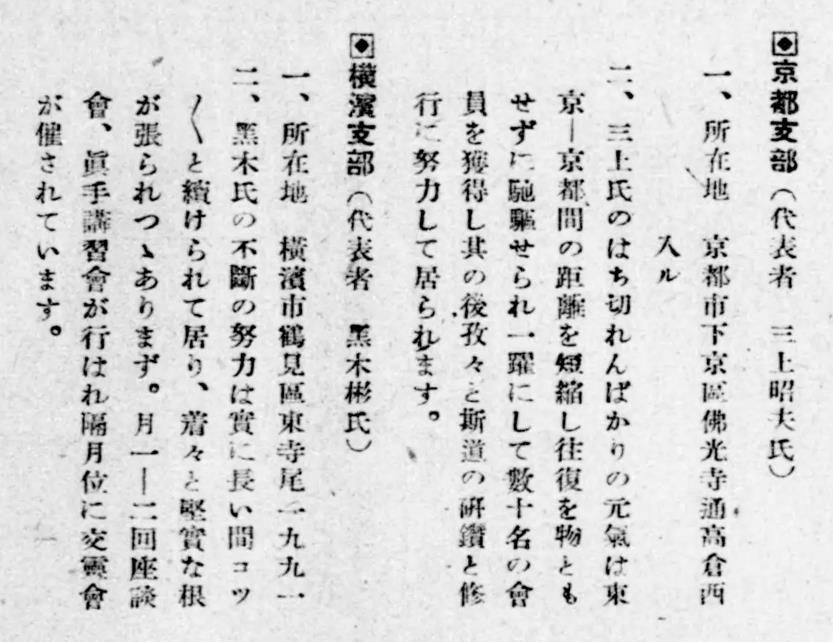 ◆京都支部(代表者 三上昭夫氏)
一、所在地 京都市下京區佛光寺通高倉西
入ル
二、三上氏のはち切れんばかりの元氣は東
京―京都間の距離を短縮し往復を物とも
せずに馳驅せられ一躍にして數十名の會
員を獲得し其の後孜々と斯道の硏鑽と修
行に努力して居られます。
◆橫濱支部(代表者 黑木彬氏)
一、所在地 橫濱市鶴見區東寺尾一九九一
二、黑木氏の不斷の努力は實に長い間コツ
〱と續けられて居り、着々と堅實な根
が張られつゝありまず。月一―二回座談
會、眞手講習會が行はれ隔月位に交靈會
が催されています。